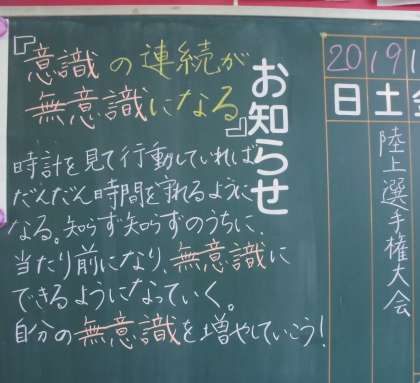 『意識の連続が
無意識になる』
お知らせ
時計を見て行動していれば
だんだん時間を守れるように
なる。知らず知らずのうちに、
当たり前になり、無意識に
できるようになっていく。
自分の無意識を増やしていこう!
20 19
日 土
陸上選手権大会